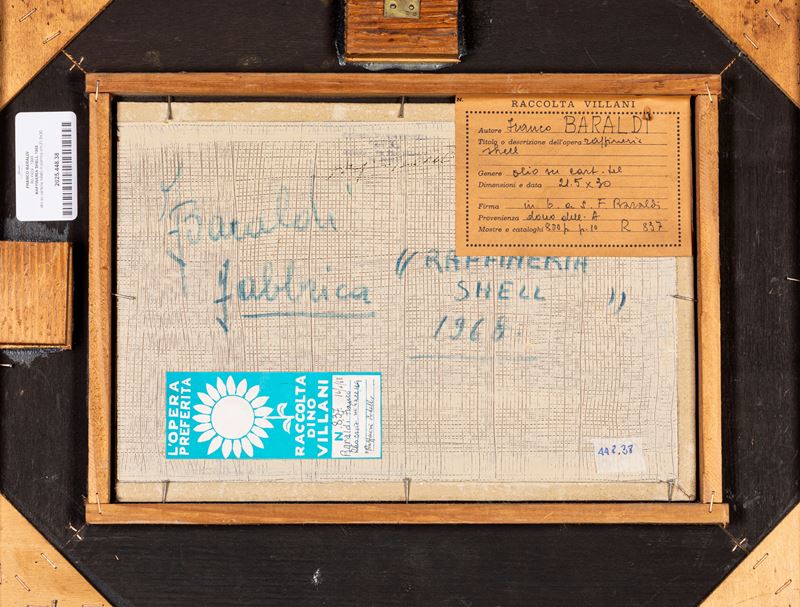 N.
RACCOLTA VILLANI
Autore Franco BARALDI
Titolo o descrizione dell'opera raffineria
shell
Genere olio su cart. tel
Dimensioni e data 21.5 x 30
Firma in b. a s. F. Baraldi
Provenienza dono dell. A
Mostre e cataloghi 800 p. p. 10 R 837
FRANCO BARALDI
RAFFINERIA SHELL 1968
2025.448.38
Baraldi
fabbrica
" RAFFINERIA
SHELL "
1968
L'OPERA
PREFERITA
RACCOLTA
DINO
VILLANI
N 837
Baraldi Franco
442.38